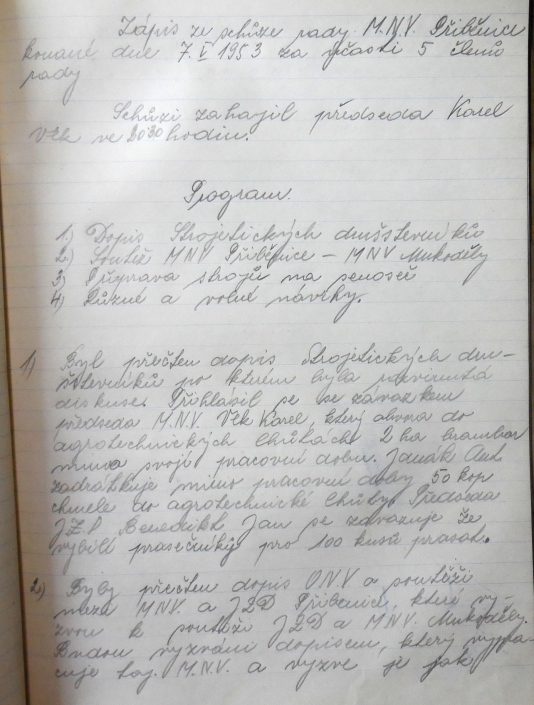 Zápis ze schůze rady M.N.V. Přiběnice
konané dne 7. I 1953 za účasti 5 členů
rady
Schůzi zahajil předseda Karel
Věk ve 20³⁰ hodin.
Program.
1.) Dopis Strojetických družstevníků
2.) Soutěž MNV Přiběnice – MNV Mukoděly
3) Příprava strojů na senoseč
4) Různé a volné návrhy.
1) Byl přečten dopis Strojetických dru-
žstevníků po kterém byla rozvinutá
diskuse. Přihlásil se se závazkem
předseda M.N.V. Věk Karel, který obora do
agrotechnických lhůtách 2 ha brambor
mimo svoji pracovní dobu. Janák Ant.
zadrátkuje mimo pracovní doby 50 kop
chmele do agrotechnické lhůty. Předseda
J.Z.D Benedikt Jan se zavazuje že
vybílí prasečníky pro 100 kusů prasat.
2.) Byly přečten dopis O.N.V a soutěži
meze MNV. a JZD Přiběnice, které vy-
zvou k soutěži JZD a MNV. Mukoděly.
Budou vyzváni dopisem, který vypra-
cuje taj. M.N.V. a vyzve je jak